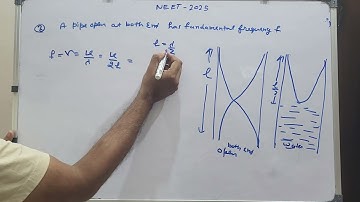 NEET-2025
③ A pipe open at both End has fundamental frequency f
f = ν = v/λ = v/2l =
l = λ/2
l
both End
open
l/2
Water